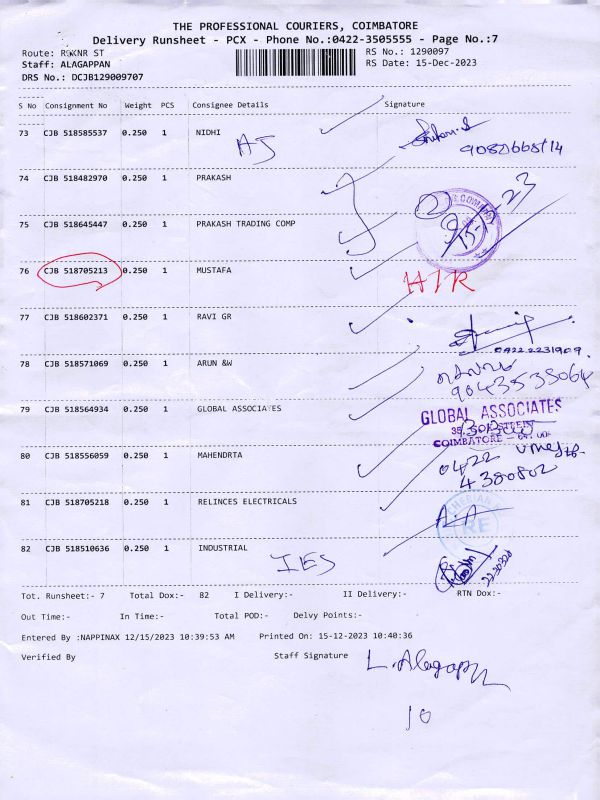 THE PROFESSIONAL COURIERS, COIMBATORE
Delivery Runsheet - PCX - Phone No.:0422-3505555 - Page No.:7
Route: RSKNR ST
RS No.: 1290097
Staff: ALAGAPPAN
RS Date: 15-Dec-2023
DRS No.: DCJB129009707
S No Consignment No Weight PCS Consignee Details Signature
73 CJB 518585537 0.250 1 NIDHI
AS
74 CJB 518482970 0.250 1 PRAKASH
23
75 CJB 518645447 0.250 1 PRAKASH TRADING COMP
76 CJB 518705213 0.250 1 MUSTAFA
77 CJB 518602371 0.250 1 RAVI GR
0422 2231909
78 CJB 518571069 0.250 1 ARUN &W
9043535064
79 CJB 518564934 0.250 1 GLOBAL ASSOCIATES
GLOBAL ASSOCIATES
COIMBATORE
80 CJB 518556059 0.250 1 MAHENDRTA
0422
4380802
81 CJB 518705218 0.250 1 RELINCES ELECTRICALS
A.A
RE
82 CJB 518510636 0.250 1 INDUSTRIAL
IES
Tot. Runsheet:- 7 Total Dox:- 82 I Delivery:- II Delivery:- RTN Dox:-
Out Time:- In Time:- Total POD:- Delvy Points:-
Entered By :NAPPINAX 12/15/2023 10:39:53 AM Printed On: 15-12-2023 10:40:36
Verified By Staff Signature
L. Alagapp
10